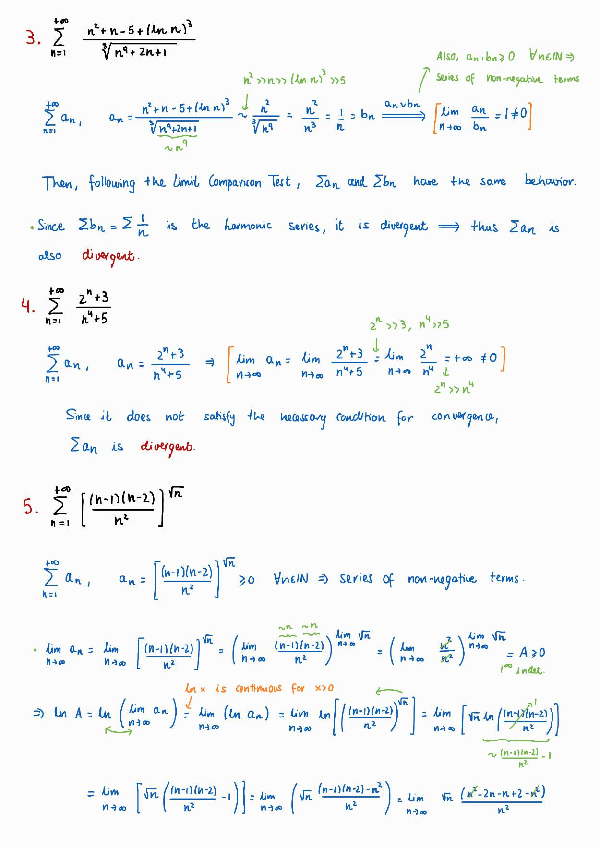 3. \sum_{n=1}^{+\infty} \frac{n^2+n-5+(\ln n)^3}{\sqrt[3]{n^9+2n+1}}
Also, a_n, b_n ≥ 0 ∀n∈ℕ ⇒ series of non-negative terms
n^2 >> n >> (ln n)^3 >> 5
\sum_{n=1}^{+\infty} a_n, a_n = \frac{n^2+n-5+(\ln n)^3}{\sqrt[3]{n^9+2n+1}} ∼ \frac{n^2}{\sqrt[3]{n^9}} = \frac{n^2}{n^3} = \frac{1}{n} = b_n \overset{a_n ∼ b_n}{⟹} [\lim_{n→∞} \frac{a_n}{b_n} = 1 ≠ 0]
∼ n^9
Then, following the Limit Comparison Test, Σa_n and Σb_n have the same behavior.
• Since Σb_n = Σ \frac{1}{n} is the harmonic series, it is divergent ⟹ thus Σa_n is
also divergent.
4. \sum_{n=1}^{+\infty} \frac{2^n+3}{n^4+5}
2^n >> 3, n^4 >> 5
\sum_{n=1}^{+\infty} a_n, a_n = \frac{2^n+3}{n^4+5} ⇒ [\lim_{n→∞} a_n = \lim_{n→∞} \frac{2^n+3}{n^4+5} = \lim_{n→∞} \frac{2^n}{n^4} = +∞ ≠ 0]
2^n >> n^4
Since it does not satisfy the necessary condition for convergence,
Σa_n is divergent.
5. \sum_{n=1}^{+\infty} [\frac{(n-1)(n-2)}{n^2}]^{\sqrt{n}}
\sum_{n=1}^{+\infty} a_n, a_n = [\frac{(n-1)(n-2)}{n^2}]^{\sqrt{n}} ≥ 0 ∀n∈ℕ ⇒ series of non-negative terms.
∼n ∼n
• \lim_{n→∞} a_n = \lim_{n→∞} [\frac{(n-1)(n-2)}{n^2}]^{\sqrt{n}} = (\lim_{n→∞} \frac{(n-1)(n-2)}{n^2})^{\lim_{n→∞} \sqrt{n}} = (\lim_{n→∞} \frac{n^2}{n^2})^{\lim_{n→∞} \sqrt{n}} = A ≥ 0
1^∞ indet.
ln x is continuous for x>0
⇒ ln A = ln (\lim_{n→∞} a_n) = \lim_{n→∞} (ln a_n) = \lim_{n→∞} ln[(\frac{(n-1)(n-2)}{n^2})^{\sqrt{n}}] = \lim_{n→∞} [\sqrt{n} ln(\frac{(n-1)(n-2)}{n^2})]
1
∼ \frac{(n-1)(n-2)}{n^2} - 1
= \lim_{n→∞} [\sqrt{n} (\frac{(n-1)(n-2)}{n^2} - 1)] = \lim_{n→∞} (\sqrt{n} \frac{(n-1)(n-2)-n^2}{n^2}) = \lim_{n→∞} \sqrt{n} \frac{(n^2-2n-n+2-n^2)}{n^2}